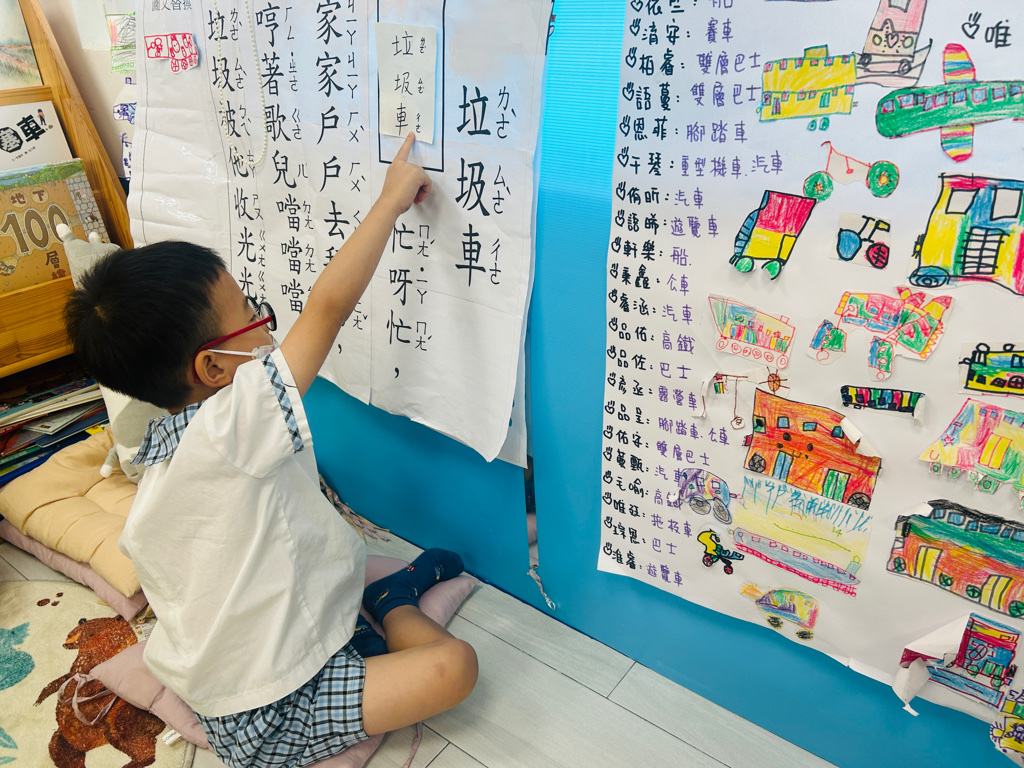 垃圾車
垃圾車
忙呀忙,
家家戶戶去
哼著歌兒噹噹噹
垃圾被他收光光
地下
100
層
車
船
清守:賽車
柏睿:雙層巴士
語蔓:雙層巴士
恩菲:腳踏車
千琴:重型機車.汽車
侑昕:汽車
語晞:遊覽車
軒樂:船
秉鑫:公車
睿涵:汽車
品佑:高鐵
品佐:巴士
彥丞:露營車
品呈:腳踏車.公車
佑守:雙層巴士
蔓甄:汽車
元喻:高鐵
琮恩:巴士
淮睿:遊覽車
唯